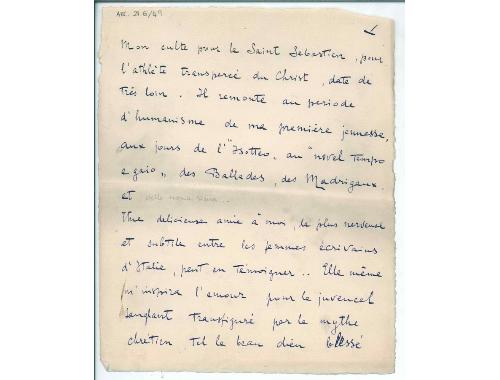 ARC. 21.6/49
Mon culte pour le Saint Sébastien, pour
l'athlète transpercé du Christ, date de
très loin. Il remonte au periode
d'humanisme de ma première jeunesse,
aux jours de l'"Isotteo, au "novel tempo
e gaio„ des Ballades, des Madrigaux.
et
Une delicieuse amie à moi, la plus nerveuse
et subtile entre les femmes écrivains
d'Italie, peut en témoigner.. Elle même
m'inspira l'amour pour le juvencel
sanglant transfiguré par le mythe
chretien, tel le beau dieu blessé